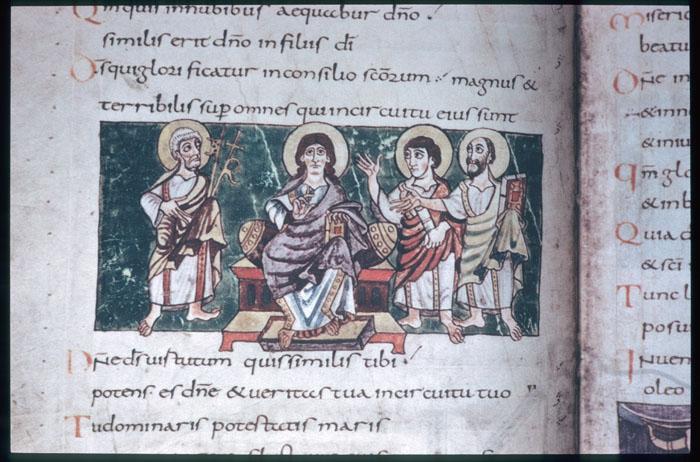 Qm quis innubibus aequabitur dno.
similis erit dno in filiis di
Ds qui glorificatur inconsilio scorum: magnus &
terribilis sup omnes qui incircuitu eius sunt
Dne ds uirtutum quis similis tibi.
potens es dne & ueritas tua incircuitu tuo
Tu dominaris potestatis maris
Miseric
beatu
Dne in
& inn
& iniu
Qm glo
& inb
Quia d
& sci
Tunc l
posui
Inuen
oleo